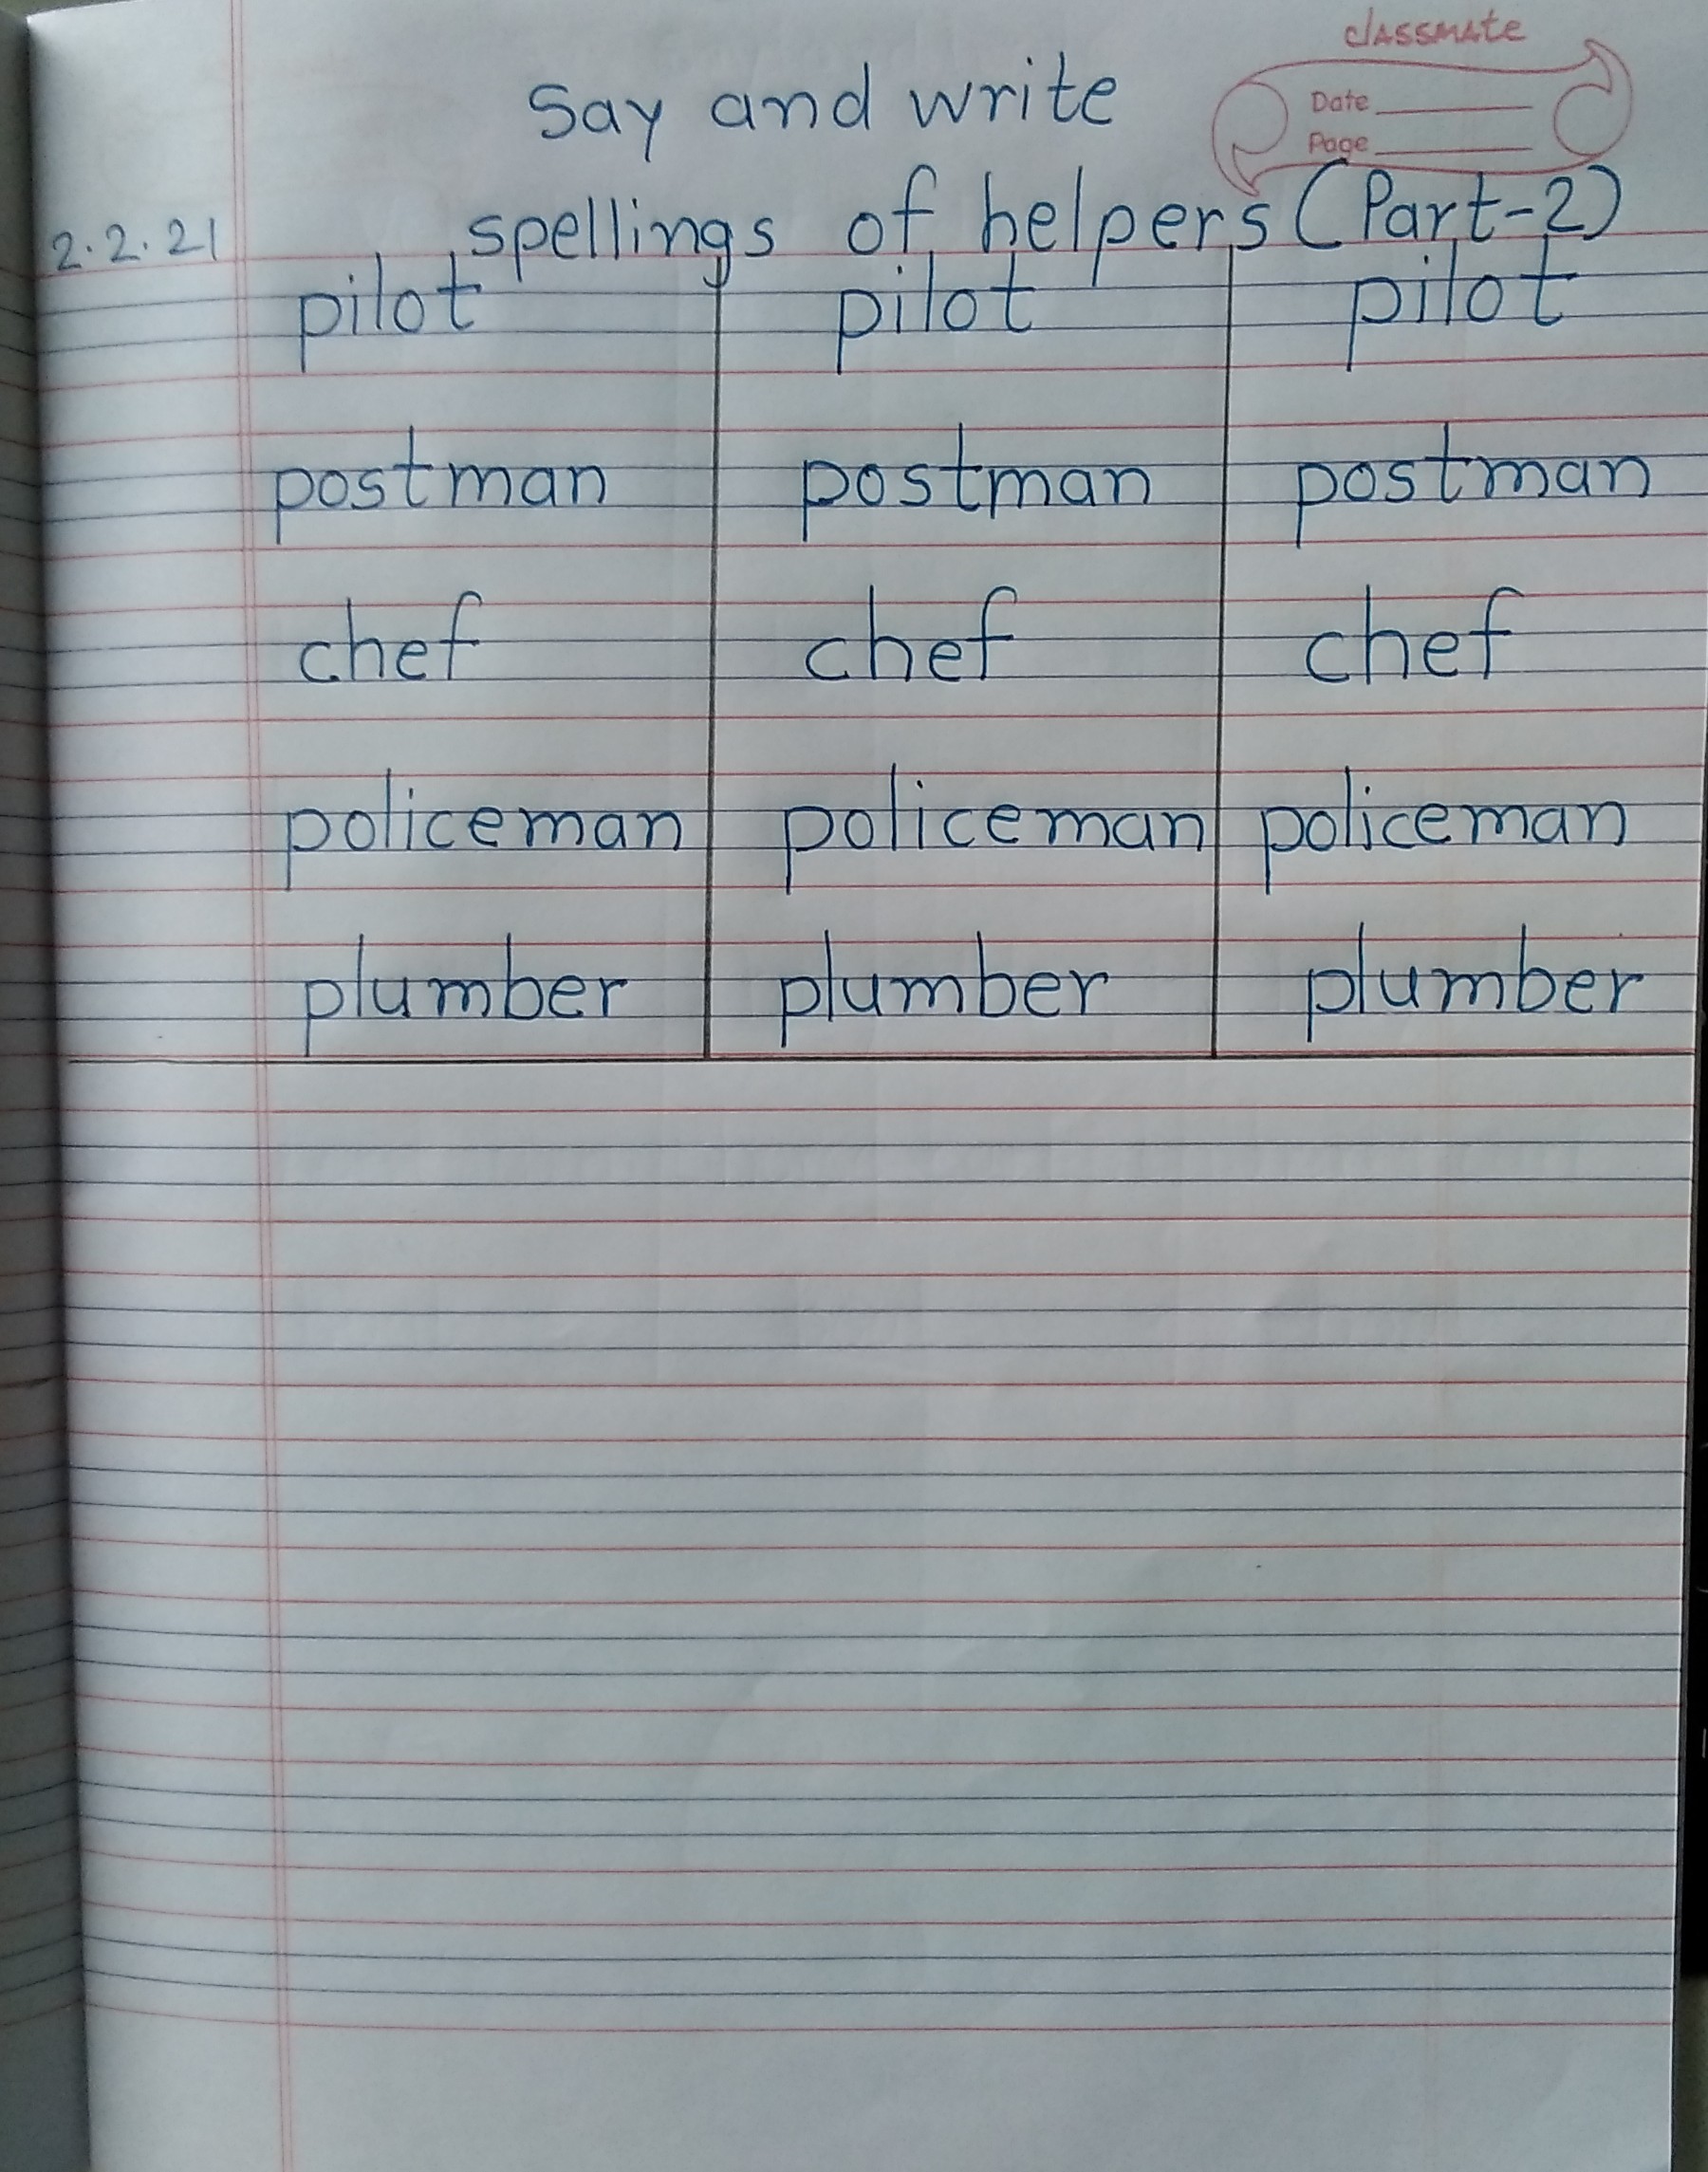 classmate
Date
Page
Say and write
spellings of helpers (Part-2)
2.2.21
pilot pilot pilot
postman postman postman
chef chef chef
policeman policeman policeman
plumber plumber plumber